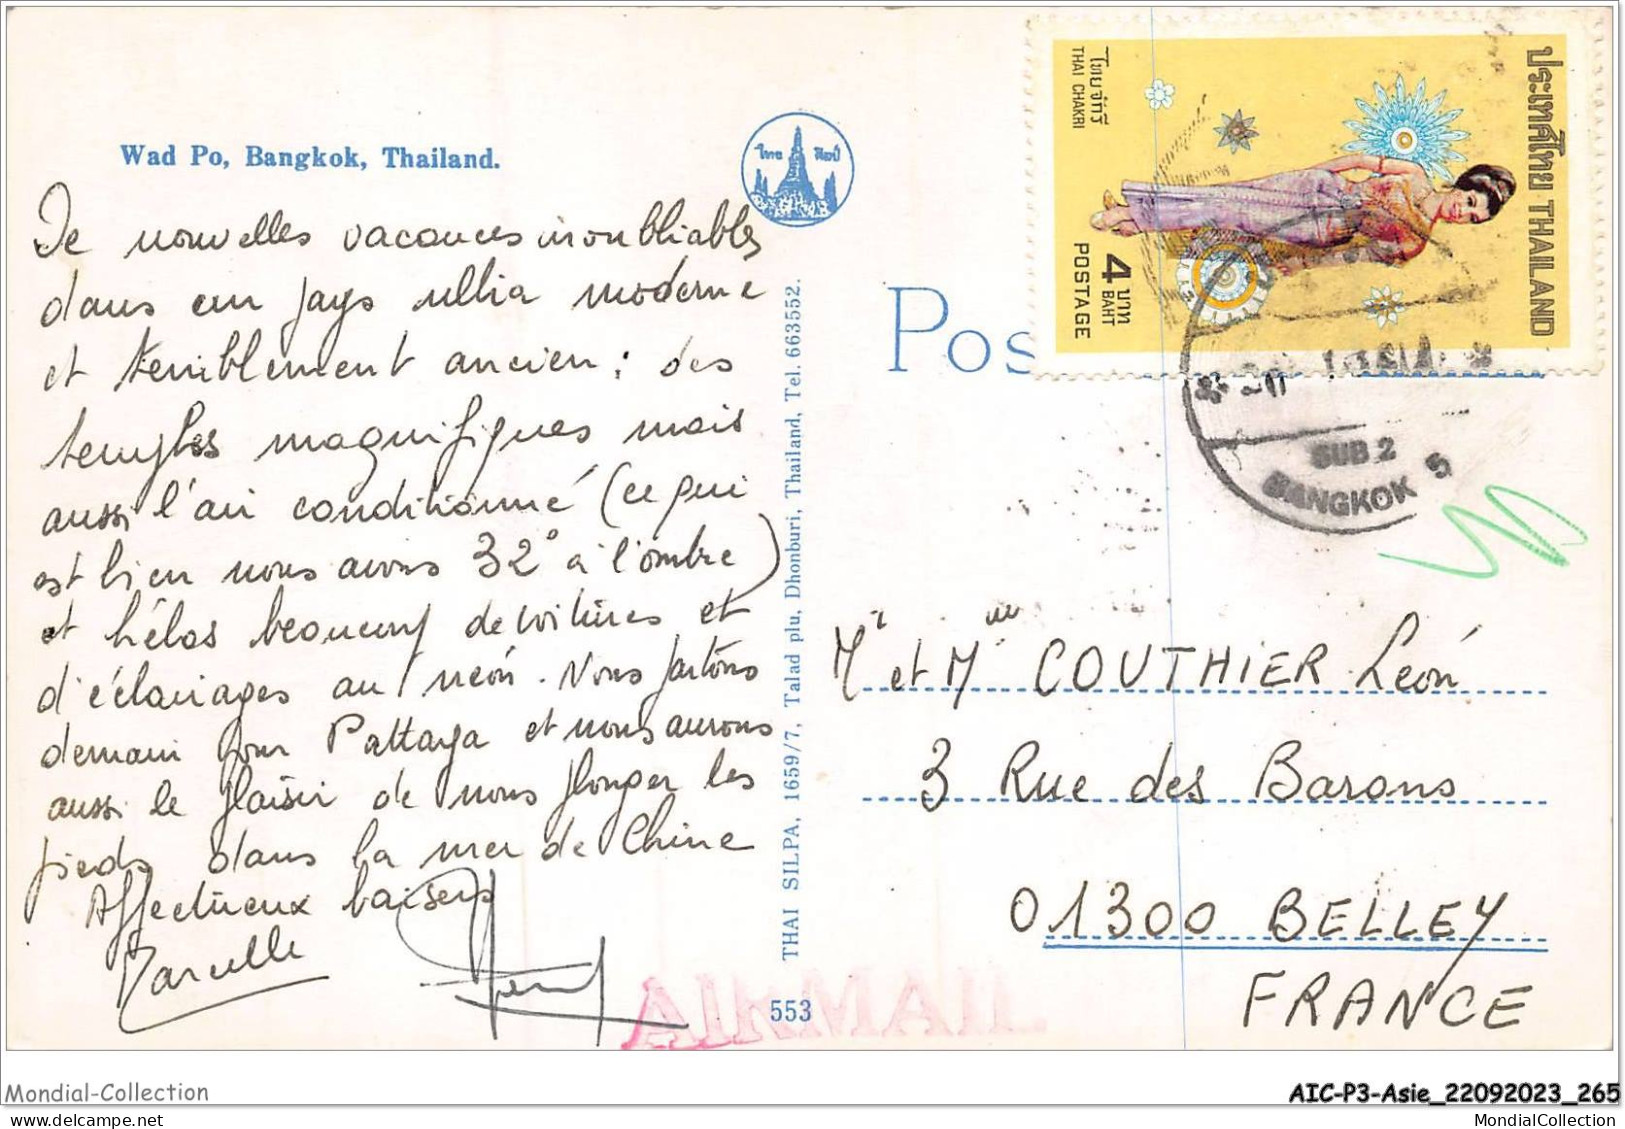 Wad Po, Bangkok, Thailand.
ไทย ศิลป์
De nouvelles vacances inoubliables
dans un pays ultra moderne
et terriblement ancien : des
temples magnifiques mais
aussi l'air conditionné (ce qui
est bien nous avons 32° à l'ombre)
et hélas beaucoup de voitures et
d'éclairages au néon. Nous partons
demain pour Pattaya et nous aurons
aussi le plaisir de nous plonger les
pieds dans la mer de Chine
Affectueux baisers
Marcelle
THAI SILPA, 1659/7, Talad plu, Dhonburi, Thailand, Tel. 663552.
553
Pos
ประเทศไทย THAILAND
ไทยจักรี
THAI CHAKRI
4 บาท
BAHT
POSTAGE
SUB. 2
BANGKOK 5
Mr et Mme COUTHIER Léon
3 Rue des Barons
01300 BELLEY
FRANCE
AIR MAIL
Mondial-Collection
AIC-P3-Asie_22092023_265
MondialCollection